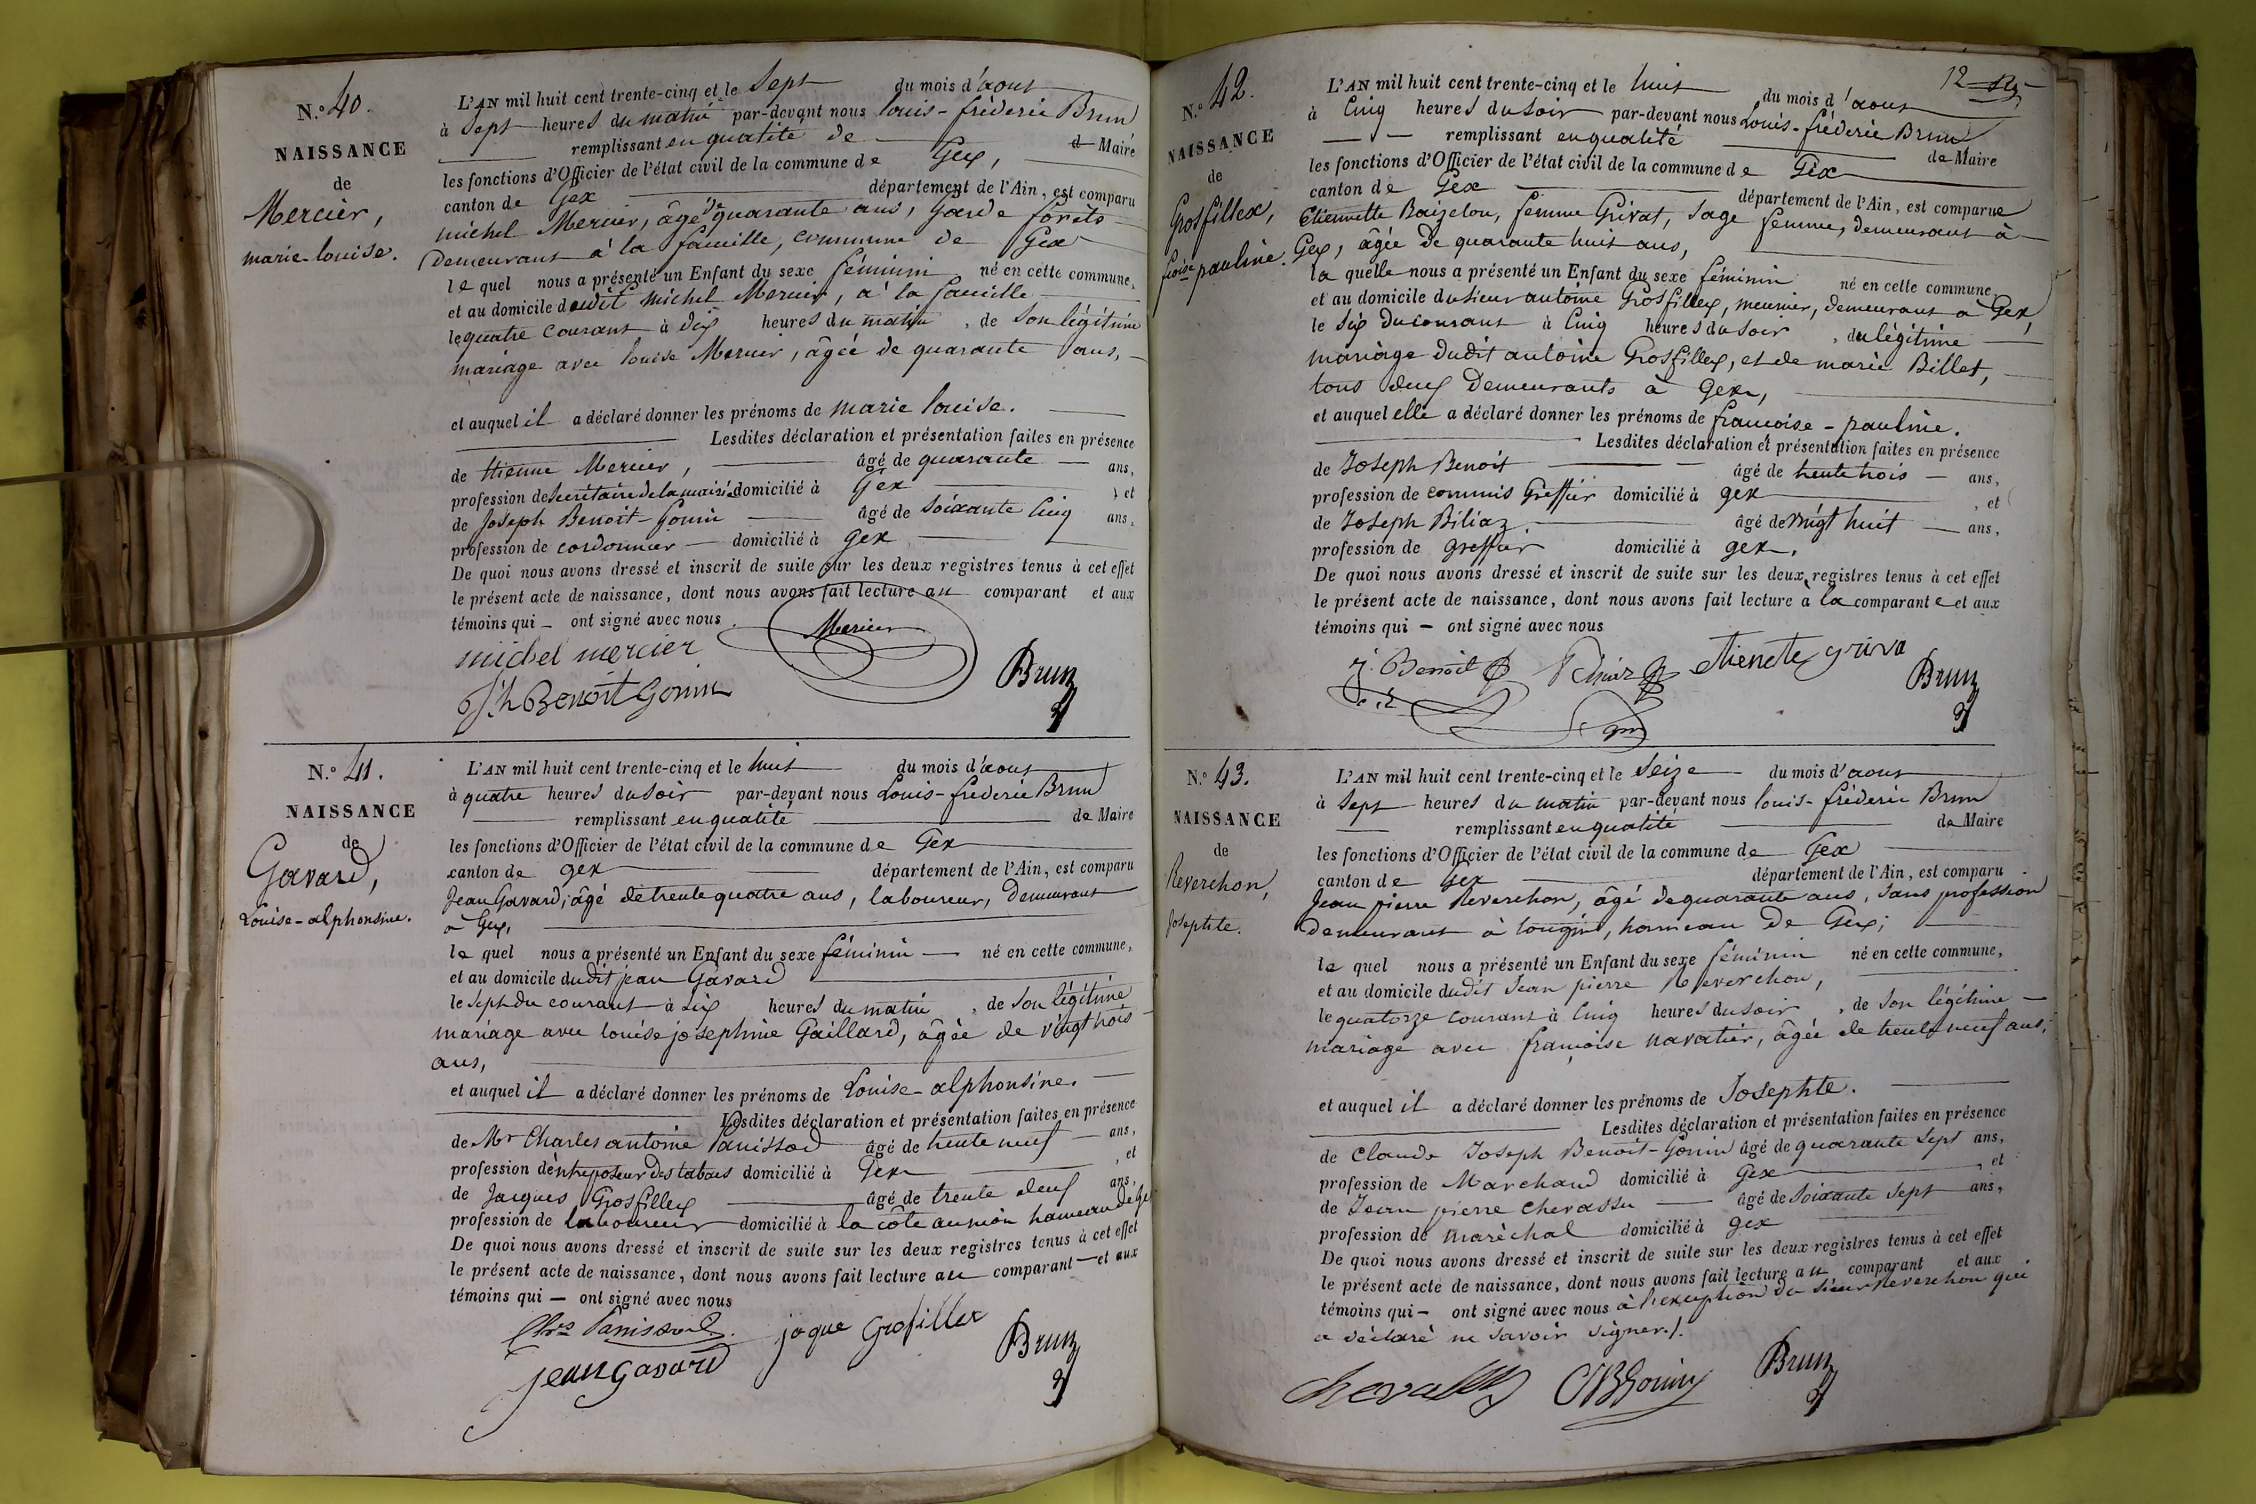 N.o 40.
NAISSANCE
de
Mercier,
marie-louise.
L'AN mil huit cent trente-cinq et le Sept du mois d'aout
à Sept heures du matin par-devant nous Louis-fréderic Brun
remplissant en qualité de Maire
les fonctions d'Officier de l'état civil de la commune de Gex,
canton de Gex département de l'Ain, est comparu
michel Mercier, âgé de quarante ans, Garde forêts
Demeurant à la faucille, commune de Gex
le quel nous a présenté un Enfant du sexe féminin né en cette commune,
et au domicile dudit michel Mercier, à la faucille,
le quatre courant à dix heures du matin, de Son légitime
mariage avec louise Mercier, âgée de quarante ans,
et auquel il a déclaré donner les prénoms de marie louise.
Lesdites déclaration et présentation faites en présence
de Etienne Mercier, âgé de quarante ans,
profession de Secrétaire de la mairie domicilié à Gex, et
de Joseph Benoit-Gonin âgé de Soixante Cinq ans,
profession de cordonnier domicilié à gex
De quoi nous avons dressé et inscrit de suite sur les deux registres tenus à cet effet
le présent acte de naissance, dont nous avons fait lecture au comparant et aux
témoins qui ont signé avec nous
Mercier
michel mercier
Brun
Jh Benoit Gonin
N.o 41.
NAISSANCE
de
Gavard,
Louise-alphonsine.
L'AN mil huit cent trente-cinq et le huit du mois d'aout
à quatre heures du Soir par-devant nous Louis-fréderic Brun
remplissant en qualité de Maire
les fonctions d'Officier de l'état civil de la commune de Gex
canton de gex département de l'Ain, est comparu
Jean Gavard, âgé de trente quatre ans, laboureur, Demeurant
à Gex,
le quel nous a présenté un Enfant du sexe féminin né en cette commune,
et au domicile dudit jean Gavard
le Sept du courant à Six heures du matin, de Son légitime
mariage avec louise josephine Gaillard, âgée de vingt trois
ans,
et auquel il a déclaré donner les prénoms de Louise-alphonsine.
Lesdites déclaration et présentation faites en présence
de Mr Charles antoine Panissod âgé de trente neuf ans,
profession d'entreposeur des tabacs domicilié à Gex, et
de Jacques Grosfillex âgé de trente deux ans,
profession de laboureur domicilié à la côte hameau de Gex
De quoi nous avons dressé et inscrit de suite sur les deux registres tenus à cet effet
le présent acte de naissance, dont nous avons fait lecture au comparant et aux
témoins qui ont signé avec nous
Chles Panissod
joque Grofillex
Brun
jean Gavard
12
N.o 42.
NAISSANCE
de
Grosfillex,
fçoise pauline.
L'AN mil huit cent trente-cinq et le huit du mois d'aout
à Cinq heures du Soir par-devant nous Louis-fréderic Brun
remplissant en qualité de Maire
les fonctions d'Officier de l'état civil de la commune de Gex
canton de Gex département de l'Ain, est comparue
Etiennette Baizelon, femme Grivat, Sage femme, demeurant à
Gex, âgée de quarante huit ans,
la quelle nous a présenté un Enfant du sexe féminin né en cette commune,
et au domicile du Sieur antoine Grosfillex, meunier, demeurant à Gex,
le Six du courant à Cinq heures du Soir, du légitime
mariage dudit antoine Grosfillex, et de marie Billet,
tous deux Demeurants à Gex,
et auquel elle a déclaré donner les prénoms de françoise-pauline.
Lesdites déclaration et présentation faites en présence
de Joseph Benoit âgé de trente trois ans,
profession de commis Greffier domicilié à gex, et
de Joseph Biliaz âgé de vingt huit ans,
profession de greffier domicilié à gex.
De quoi nous avons dressé et inscrit de suite sur les deux registres tenus à cet effet
le présent acte de naissance, dont nous avons fait lecture à la comparante et aux
témoins qui ont signé avec nous
j. Benoit
etienete griva
Brun
N.o 43.
NAISSANCE
de
Reverchon,
Josephte.
L'AN mil huit cent trente-cinq et le Seize du mois d'aout
à Sept heures du matin par-devant nous louis-fréderic Brun
remplissant en qualité de Maire
les fonctions d'Officier de l'état civil de la commune de Gex
canton de Gex département de l'Ain, est comparu
Jean pierre Reverchon, âgé de quarante ans, Sans profession
Demeurant à tougin, hameau de Gex;
le quel nous a présenté un Enfant du sexe féminin né en cette commune,
et au domicile dudit Jean pierre Reverchon,
le quatorze courant à Cinq heures du Soir, de Son légitime
mariage avec françoise navatier, âgée de trente neuf ans,
et auquel il a déclaré donner les prénoms de Josephte.
Lesdites déclaration et présentation faites en présence
de Claude Joseph Benoit-Gonin âgé de quarante Sept ans,
profession de Marchand domicilié à Gex, et
de Jean pierre chevassu âgé de Soixante Sept ans,
profession de maréchal domicilié à gex
De quoi nous avons dressé et inscrit de suite sur les deux registres tenus à cet effet
le présent acte de naissance, dont nous avons fait lecture au comparant et aux
témoins qui ont signé avec nous à l'exception du Sieur Reverchon qui
a déclaré ne Savoir Signer./.
chevassu
CJBGonin
Brun